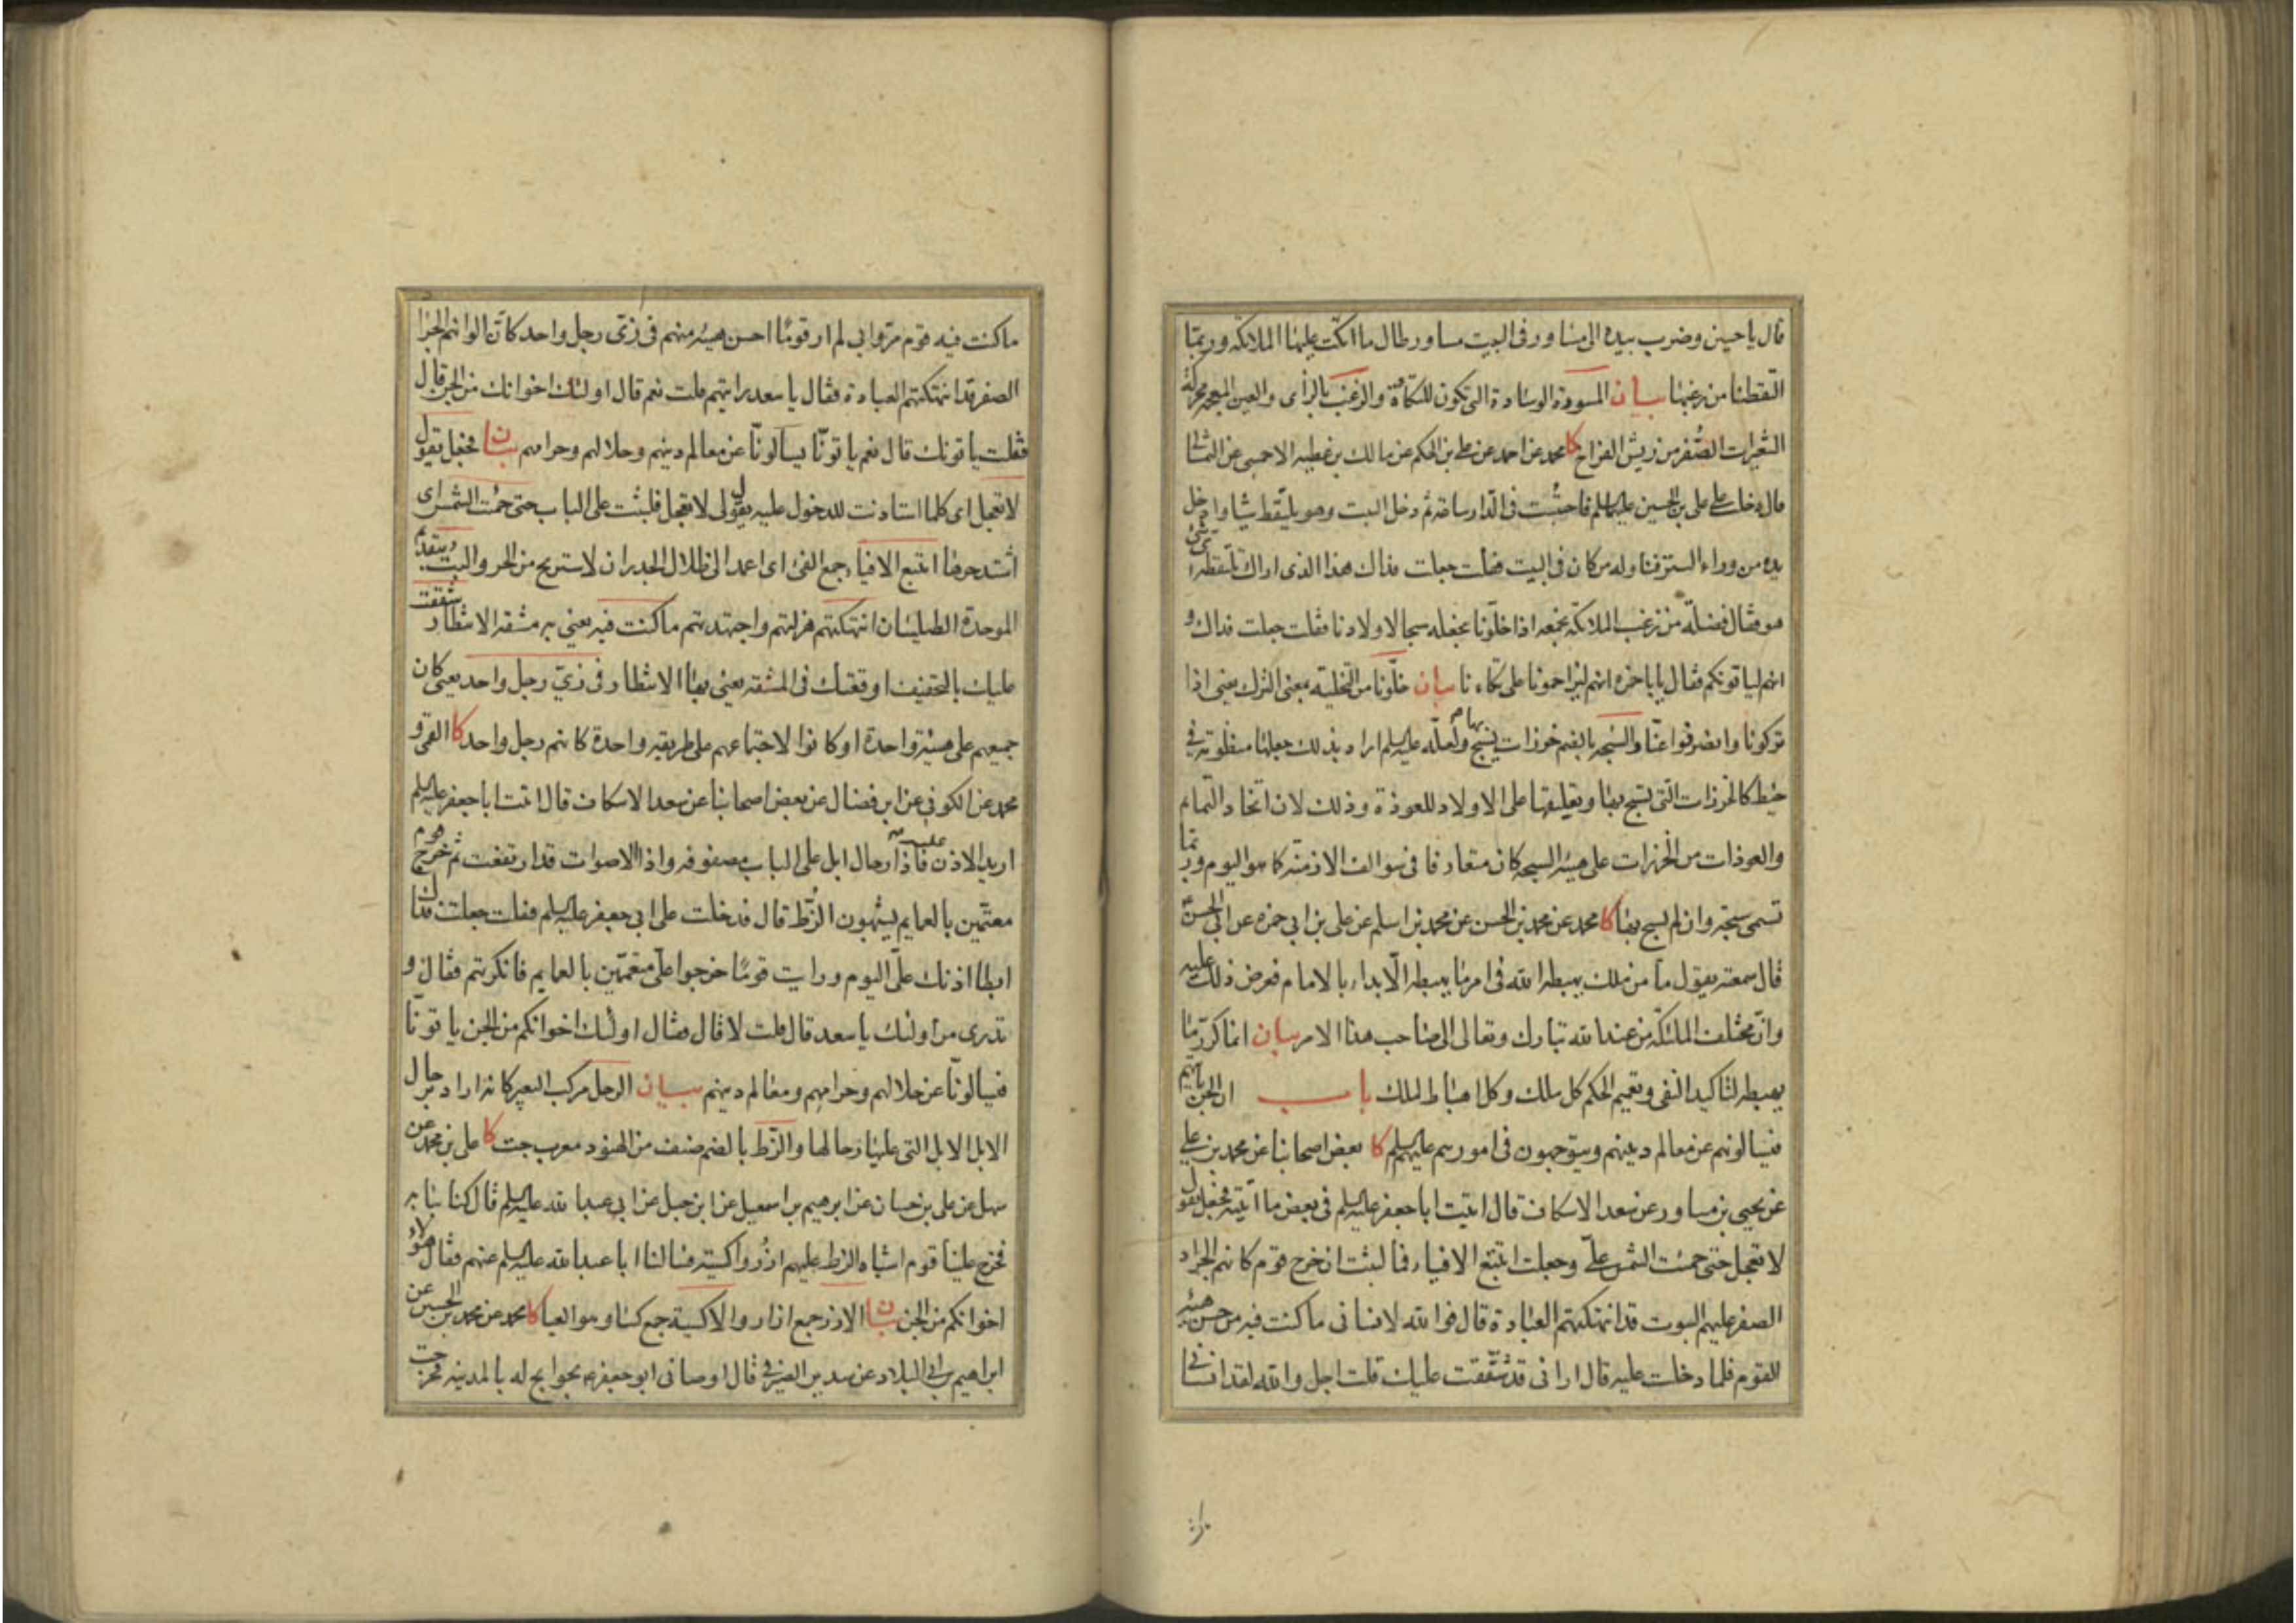 قال يا حسين وضرب بيده الى مساور فى البيت مساور طال ما اتكت عليها الملائكة وربّما
التقطنا من زغبها بيان المسورة الوسادة التى تكون للتكأة والزغب بالزاى والغين المعجمة محركة
الشعيرات الصُّفر من ريش الفراخ كا محمد عن احمد عن على بن الحكم عن مالك بن عطيه الاحمسى عن الثمالى
قال دخلت على على بن الحسين عليهما السلم فاحتبست فى الدار ساعة ثم دخل البيت وهو يلتقط شيئا وادخل
يده من وراء الستر فناوله من كان فى البيت فقلت جعلت فداك هذا الذى اراك تلتقطه اى شئ
هو فقال فضلة من زغب الملائكة نجمعه اذا خلّونا نجعله سيحا لاولادنا فقلت جعلت فداك و
انهم لياتونكم فقال يا با حمزه انهم ليزاحمونا على تكاءتنا بيان خلّونا من التخلية بمعنى الترك يعنى اذا
تركونا وانصرفوا عنّا والسُبحه بالضم خرزات يسبح بها ولعلّه عليه السلم اراد بذلك جعلها منظومة فى
خيط كالخرزات التى يسبح بها وتعليقها على الاولاد للعوذة وذلك لان اتخاذ التمايم
والعوذات من الخرزات على هيئة السبحه كان متعارفا فى سوالف الازمنة كما هو اليوم وربّما
تسمى سبحة وان لم يسبح بها كا محمد عن محمد بن الحسن عن محمد بن اسلم عن على بن ابى حمزه عن ابى الحسن
قال سمعته يقول ما من ملك يهبطه الله فى امر ما يهبطه الّا بدا بالامام فعرض ذلك عليه
وانّ مختلف الملئكة من عند الله تبارك وتعالى الى صاحب هذا الامر بيان انما كرّر ما
يهبطه لتاكيد النفى وتعميم الحكم كل ملك وكل اهباط لملك باب ان الجن ياتيهم
فيسالونهم عن معالم دينهم ويتوجهون فى امورهم عليهم السلم كا بعض اصحابنا عن محمد بن على
عن يحيى بن مساور عن سعد الاسكاف قال اتيت ابا جعفر عليه السلم فى بعض ما اتيته فجعل يقول
لا تعجل حتى حميت الشمس علىّ وجعلت اتتبع الافياء فما لبثت ان خرج قوم كانهم الجراد
الصفر عليهم البتوت قد انتهكتهم العبادة قال فوالله لانسانى ما كنت فيه من حسن هيئة
القوم فلما دخلت عليه قال ارانى قد شققت عليك قلت اجل والله لقد انسانى
ما كنت فيه قوم مرّوا بى لم ار قومًا احسن هيئة منهم فى زىّ رجل واحد كانّ الوانهم الجراد
الصفر قد انتهكتهم العبادة فقال يا سعد رايتهم قلت نعم قال اولئك اخوانك من الجن قال
فقلت ياتونك قال نعم ياتونّا يسألونّا عن معالم دينهم وحلالهم وحرامهم بيان فجعل يقول
لا تعجل اى كلما استاذنت للدخول عليه يقول لى لا تعجل فلبثت على الباب حتى حميت الشمس اى
اشتد حرها اتتبع الافياء جمع الفئ اى اعمد الى ظلال الجدران لاستريح من الحر والبت بتقديم
الموحدة الطيلسان انتهكتهم هزلتهم واجهدتهم ما كنت فيه يعنى به مشقة الانتظار شققت
عليك بالتخفيف اوقعتك فى المشقة يعنى بها الانتظار فى زىّ رجل واحد يعنى كان
جميعهم على هيئة واحدة او كانوا لاجتماعهم على طريقة واحدة كانهم رجل واحد كا القمى و
محمد عن الكوفى عن ابن فضال عن بعض اصحابنا عن سعد الاسكاف قال اتيت ابا جعفر عليه السلم
اريد الاذن عليه فاذا رحال ابل على الباب مصفوفه واذا الاصوات قد ارتفعت ثم خرج قوم
معتمّين بالعمايم يشبهون الزُّط قال فدخلت على ابى جعفر عليه السلم فقلت جعلت فداك
ابطا اذنك علىّ اليوم ورايت قومًا خرجوا علىّ معتمّين بالعمايم فانكرتهم فقال او
تدرى من اولئك يا سعد قال قلت لا قال فقال اولئك اخوانكم من الجن ياتونّا
فيسالونّا عن حلالهم وحرامهم ومعالم دينهم بيان الرحل مركب البعير كانه اراد برحال
الابل الابل التى عليها رحالها والزّط بالضم صنف من الهنود معرب جت كا على بن محمد عن
سهل عن على بن حسان عن ابرهيم بن اسمعيل عن ابن جبل عن ابى عبد الله عليه السلم قال كنا ببابه
فخرج علينا قوم اشباه الزط عليهم ازُر واكسية فسالنا ابا عبد الله عليه السلم عنهم فقال هؤلاء
اخوانكم من الجن بيان الازر جمع ازار والاكسية جمع كساء وهو العبا كا محمد عن محمد بن الحسين عن
ابراهيم بن ابى البلاد عن سدير الصيرفى قال اوصانى ابو جعفر ع بحوايج له بالمدينه فخرجت